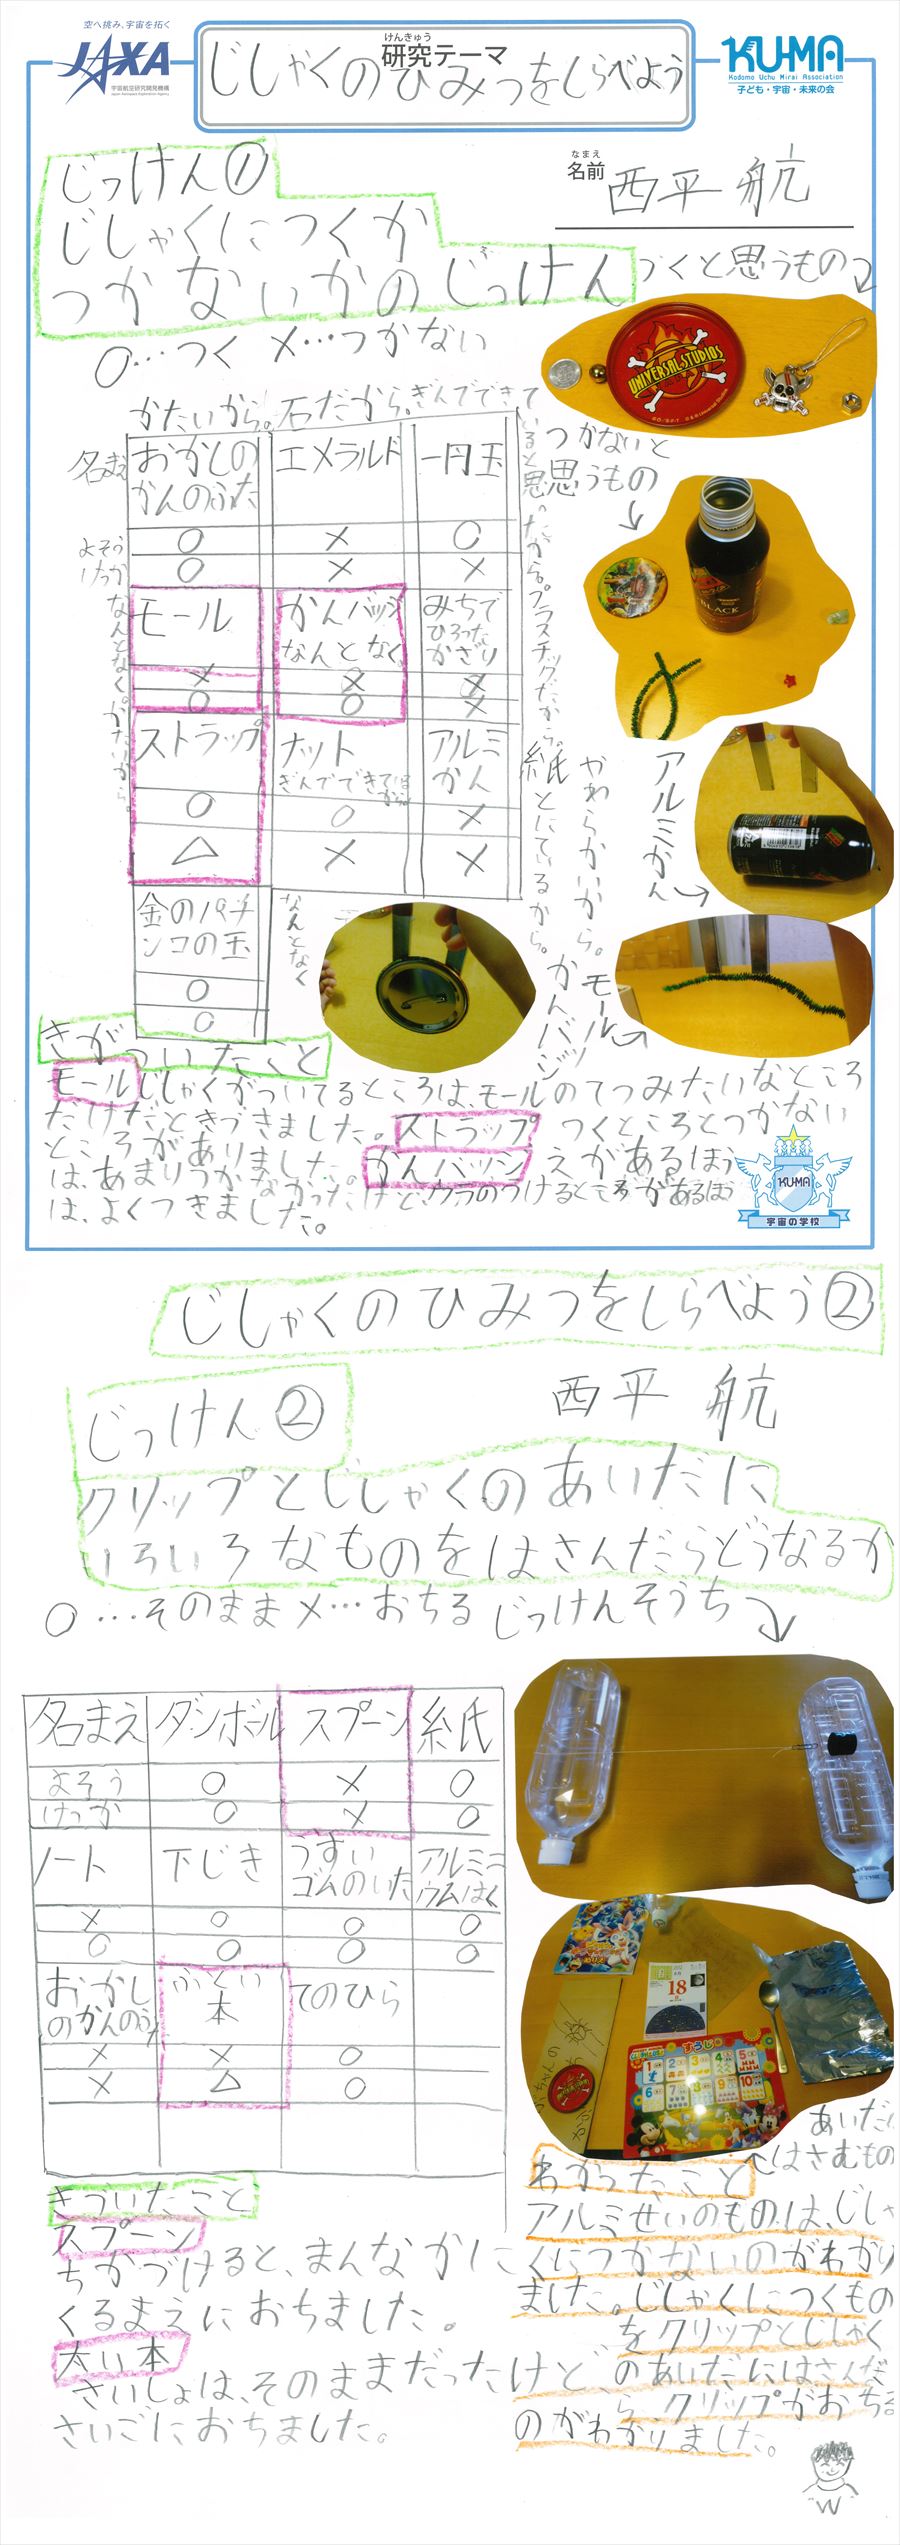 空へ挑み、宇宙を拓く
JAXA
宇宙航空研究開発機構
Japan Aerospace Exploration Agency
けんきゅう
研究テーマ
じしゃくのひみつをしらべよう
KU-MA
Kodomo Uchu Mirai Association
子ども・宇宙・未来の会
なまえ
名前
西平 航
じっけん①
じしゃくにつくか
つかないかのじっけん
○…つく ×…つかない
つくと思うもの
UNIVERSAL STUDIOS
JAPAN
かたいから。石だから。ぎんでできて
いると思ったから。プラスチックだから。
名まえ
おかしの
かんのふた
エメラルド
一円玉
よそう ○ × ○
けっか ○ × ×
つかないと
思うもの
BLACK
なんとなく。かたいから。
モール
かんバッジ
なんとなく。
みちで
ひろった
かざり
× × ×
○ ○ ×
ストラップ
ナット
ぎんでできている
から。
アルミ
かん
○ ○ ×
△ × ×
紙とにているから。
やわらかいから。
アルミかん
モール
かんバッジ
金のパチ
ンコの玉
○
○
なんとなく
きがついたこと
モールじしゃくがついてるところは、モールのてつみたいなところ
だけだときづきました。ストラップ つくところとつかない
ところがありました。かんバッジ えがあるほう
は、あまりつかなかったけど、ウラのつけるところがあるほう
は、よくつきました。
KU-MA
宇宙の学校
じしゃくのひみつをしらべよう②
西平 航
じっけん②
クリップとじしゃくのあいだに
いろいろなものをはさんだらどうなるか
○…そのまま ×…おちる じっけんそうち
名まえ ダンボール スプーン 紙
よそう ○ × ○
けっか ○ × ○
ノート
下じき
うすい
ゴムのいた
アルミニ
ウムはく
× ○ ○ ○
○ ○ ○ ○
おかし
のかんのふた
ふとい
本
てのひら
× × ○
× △ ○
18
すうじ
1 2 3 4 5
6 7 8 9 10
あいだに
はさむもの
きづいたこと
スプーン
ちかづけると、まんなかに
くるまえにおちました。
太い本
さいしょは、そのままだったけど、
さいごにおちました。
わかったこと
アルミせいのものは、じしゃ
くにつかないのがわかり
ました。じしゃくにつくもの
をクリップとじしゃく
のあいだにはさんだ
ら、クリップがおちる
のがわかりました。
"W"